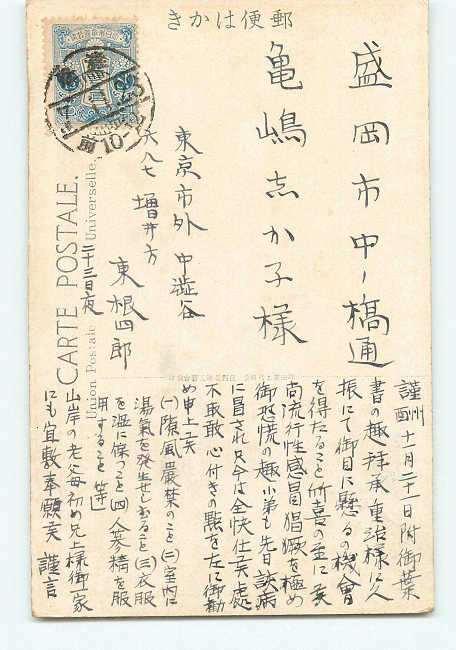 郵便はかき
盛岡市中ノ橋通
亀嶋志か子様
東京市外中澁谷
六八七 増井方
東根四郎
二十三日夜
CARTE POSTALE.
Union Postale Universelle.
謹啓 十一月二十一日附御葉
書の趣拝承重治様に久
振にて御目に懸るの機會
を得たること欣喜の至に候
尚流行性感冒猖獗を極め
御恐慌の趣小弟も先日該病
に冒され只今は全快仕候處
不取敢心付きの點を左に御勧
め申上候
(一)隙風嚴禁のこと(二)室内に
湯氣を發生しむること(三)衣服
を温に保つこと(四)人参精を服
用すること 等
山岸の老父母初め兄上様御一家
にも宜敷奉願候 謹言
前10-